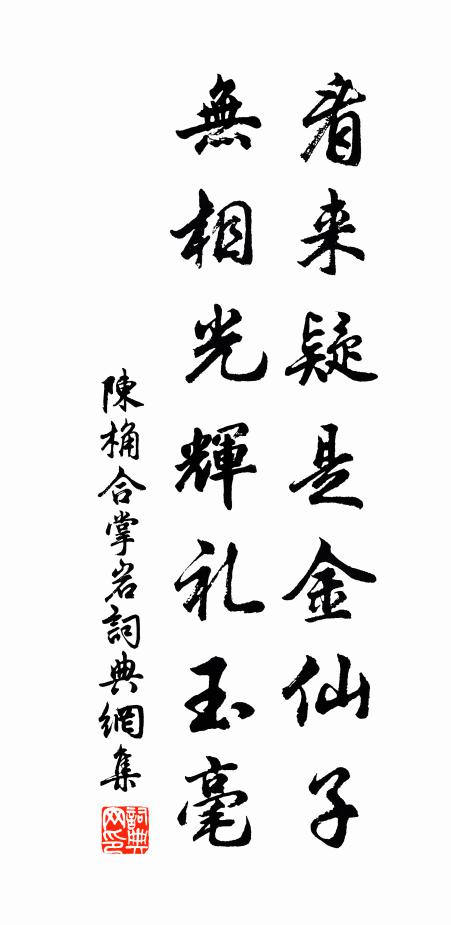 看来疑是金仙子
無相光輝礼玉毫
陳桷合掌岩詞典網集
詞典网印